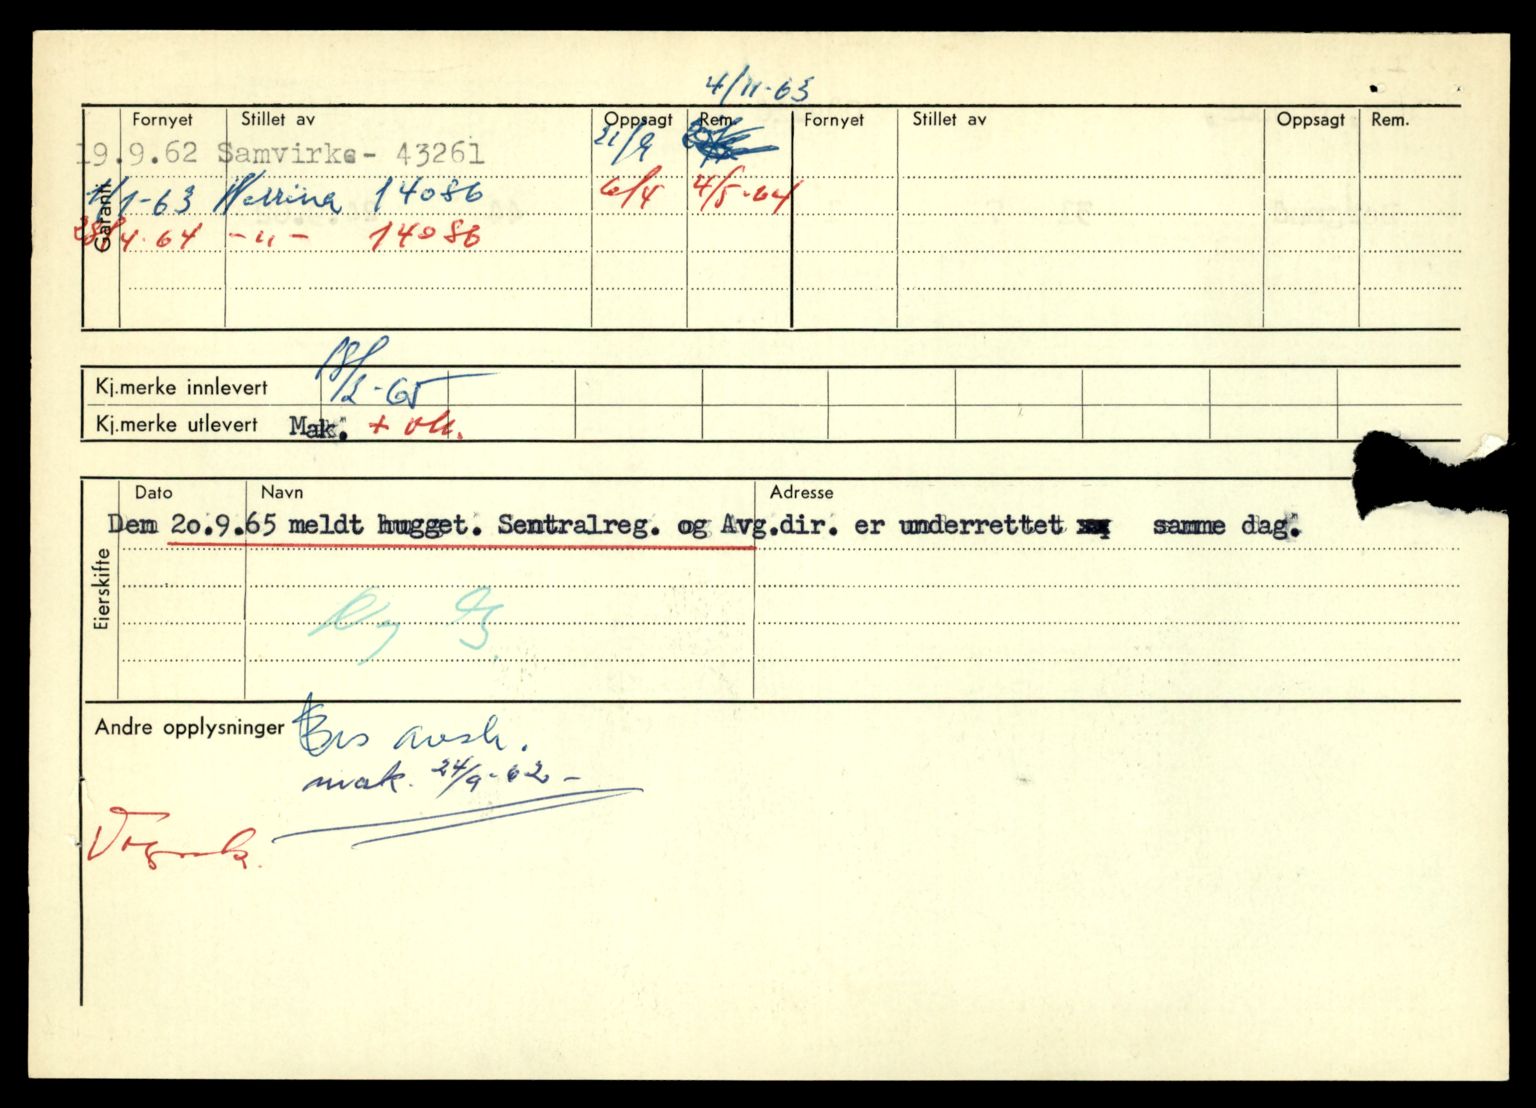 4/11-63
Fornyet Stillet av Oppsagt Rem. Fornyet Stillet av Oppsagt Rem.
19.9.62 Samvirke- 43261 21/9
Garanti
1/1-63 14086 6/4 4/5-64
28/4-64 -"- 14086
Kj.merke innlevert 18/2-65
Kj.merke utlevert Mak. +
Dato Navn Adresse
Den 20.9.65 meldt hugget. Sentralreg. og Avg.dir. er underrettet samme dag.
Eierskifte
Andre opplysninger
mak. 24/9-62-